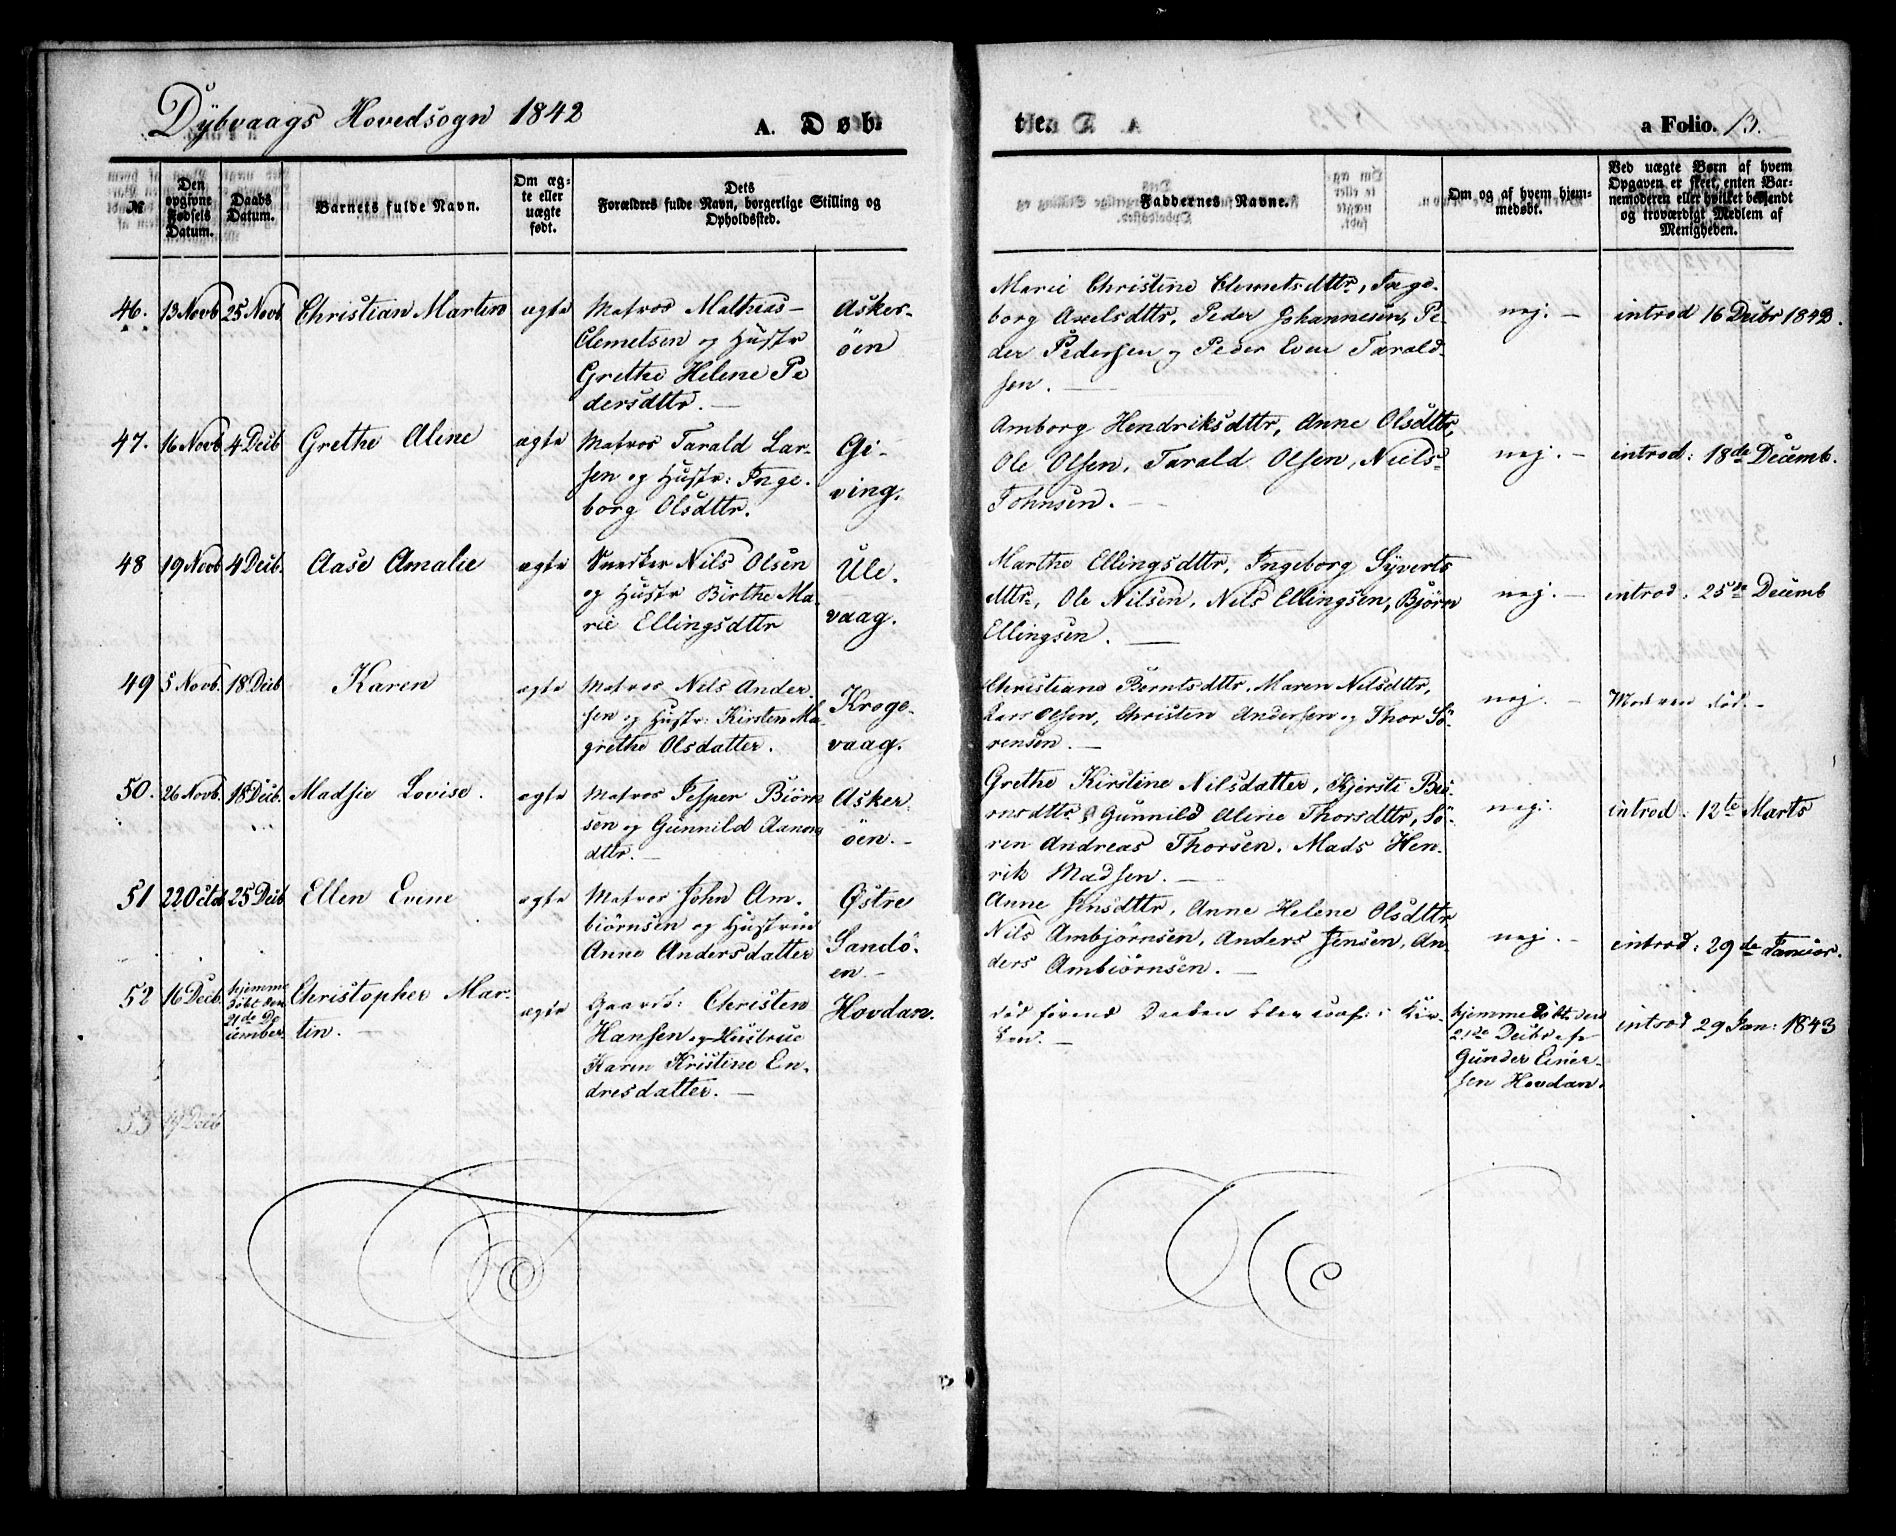 Dÿbvaags Hovedsogn 1842
A. Døb-
te.
a Folio. 13.
№
Den opgivne Fødsels Datum.
Daabs Datum.
Barnets fulde Navn.
Om ægte eller uægte født.
Dets Forældres fulde Navn, borgerlige Stilling og Opholdssted.
Faddernes Navne.
Om og af hvem hjemmedøbt.
Ved uægte Børn af hvem Opgaven er skeet, enten Barnemoderen eller hvilket bekjendt og troværdigt Medlem af Menigheden.
46. 13 Novb 25 Novb Christian Martin ægte
Matros Mathias
Clemetsen og Hustr
Grethe Helene Pe
dersdttr. —
Asker-
öen
Marie Christine Clemetsdttr, Inge-
borg Axelsdttr, Peder Johannesen, Pe-
der Pedersen og Peder Even Tarald-
sen. —
nej. —
introd 16 Decbr 1842.
47. 16 Novb 4 Decb Grethe Aline ægte
Matros Tarald Lar-
sen og Hustr: Inge-
borg Olsdttr.
Gi-
ving.
Amborg Hendriksdttr, Anne Olsdttr,
Ole Olsen, Tarald Olsen, Niels
Johnsen. —
nej. —
introd: 18de Decemb.
48 19 Novb 4 Decb. Aase Amalie ægte
Snedker Nils Olsen
og Hustr Birthe Ma-
rie Ellingsdttr
Ule-
vaag.
Marthe Ellingsdttr, Ingeborg Syverts
dttr, Ole Nilsen, Nils Ellingsen, Björn
Ellingsen. —
nej. —
introd: 25de Decemb
49 5 Novb. 18 Decb Karen ægte
Matros Nils Ander-
sen og Hustr: Kirsten Ma-
grethe Olsdatter.
Kroge-
vaag.
Christiane Berntsdttr, Maren Nilsdttr,
Lars Olsen, Christen Andersen og Thor Sö-
rensen. —
nej. —
Moderen død. —
50. 26 Novb. 18 Decb. Madsie Lovise. ægte
Matros Jesper Biörn
sen og Gunnild Aanons
dttr. —
Asker-
öen. —
Grethe Kirstine Nilsdatter, Kjersti Biö-
rnsdttr & Gunnild Aline Thorsdttr, Sö-
ren Andreas Thorsen, Mads Hen-
rik Madsen. —
nej:
introd: 12te Marts
51 22 Octb 25 Decb Ellen Evine ægte
Matros John Am-
biörnsen og Hustrue
Anne Andersdatter
Østre
Sandö-
en. —
Anne Jensdttr, Anne Helene Olsdttr
Nils Ambjörnsen, Anders Jensen, An-
ders Ambiörnsen. —
nej. —
introd: 29de Januar.
52 16 Decb. hjemme
döbt den
21de De
cember. Christopher Mar-
tin. — ægte
Gaardb: Christen
Hansen og Hustrue
Karen Kristine En-
dresdatter. —
Hovdan.
död förend Daaben blev i Kir-
ken. —
hjemmedöbt den
21de Decbr af
Gunder Einer-
sen Hovdan.
introd 29 Jan: 1843
53 19 Decb